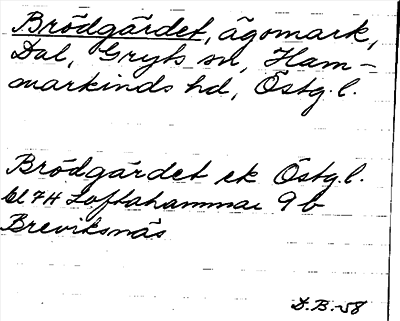 Brödgärdet, ägomark,
Dal, Gryts sn, Ham-
markinds hd, Östg.l.
Brödgärdet ek Östg.l.
bl 74 Loftahammar 9b
Breviksnäs
D.B.-58